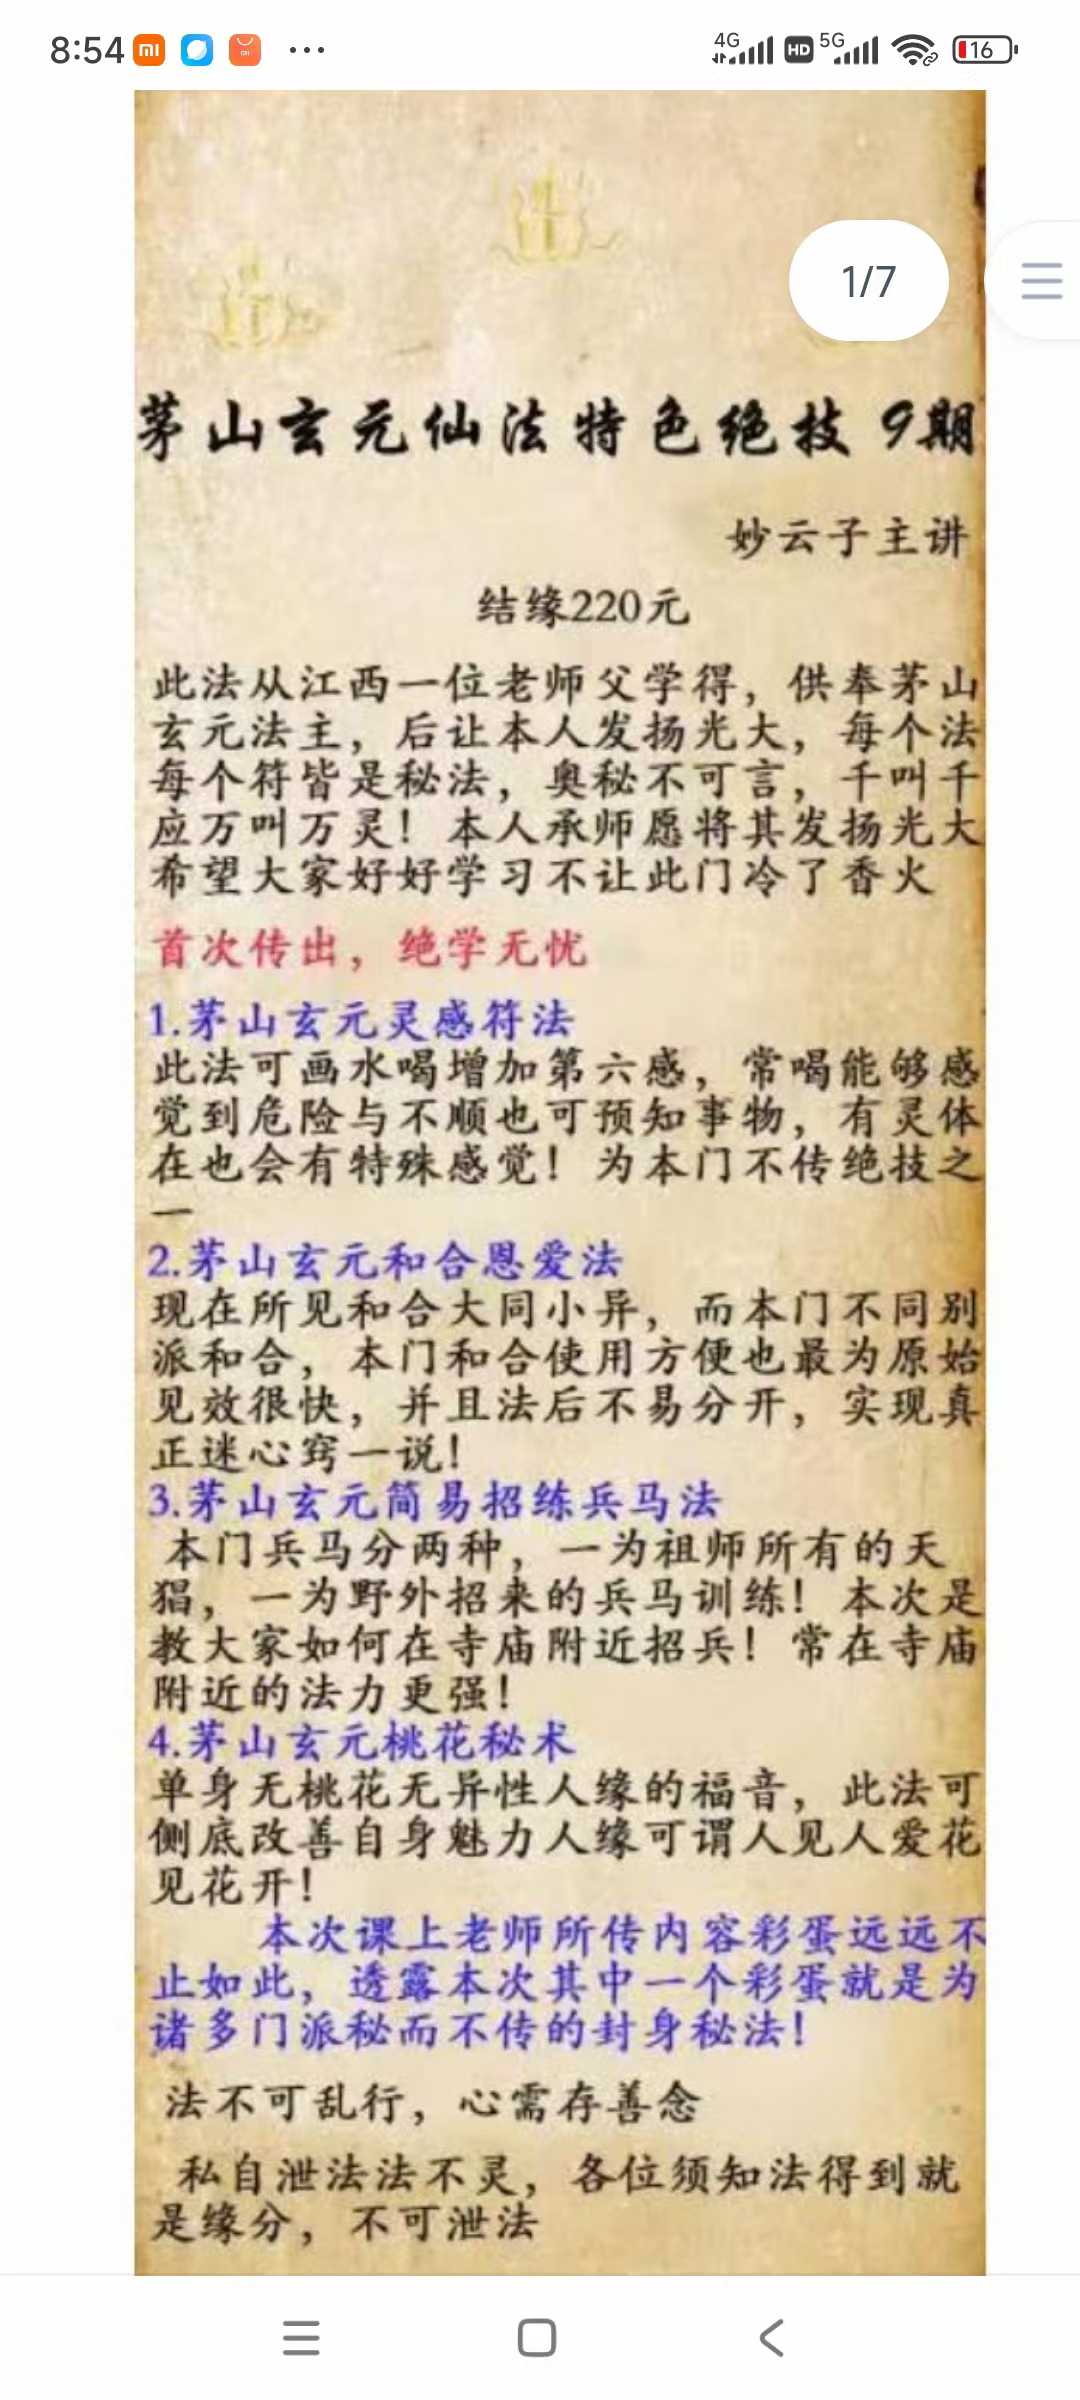 8:54
4G
HD
5G
16
1/7
茅山玄元仙法特色绝技 9期
妙云子主讲
结缘220元
此法从江西一位老师父学得，供奉茅山
玄元法主，后让本人发扬光大，每个法
每个符皆是秘法，奥秘不可言，千叫千
应万叫万灵！本人承师愿将其发扬光大
希望大家好好学习不让此门冷了香火
首次传出，绝学无忧
1.茅山玄元灵感符法
此法可画水喝增加第六感，常喝能够感
觉到危险与不顺也可预知事物，有灵体
在也会有特殊感觉！为本门不传绝技之
一
2.茅山玄元和合恩爱法
现在所见和合大同小异，而本门不同别
派和合，本门和合使用方便也最为原始
见效很快，并且法后不易分开，实现真
正迷心窍一说！
3.茅山玄元简易招练兵马法
本门兵马分两种，一为祖师所有的天
猖，一为野外招来的兵马训练！本次是
教大家如何在寺庙附近招兵！常在寺庙
附近的法力更强！
4.茅山玄元桃花秘术
单身无桃花无异性人缘的福音，此法可
侧底改善自身魅力人缘可谓人见人爱花
见花开！
本次课上老师所传内容彩蛋远远不
止如此，透露本次其中一个彩蛋就是为
诸多门派秘而不传的封身秘法！
法不可乱行，心需存善念
私自泄法法不灵，各位须知法得到就
是缘分，不可泄法